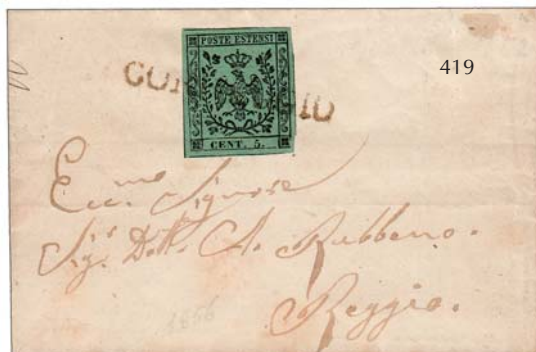 419
POSTE ESTENSI
CENT. 5.
Ecc.mo Signore
Sig.r Dott. A. Rabbeno.
Reggio.
1856